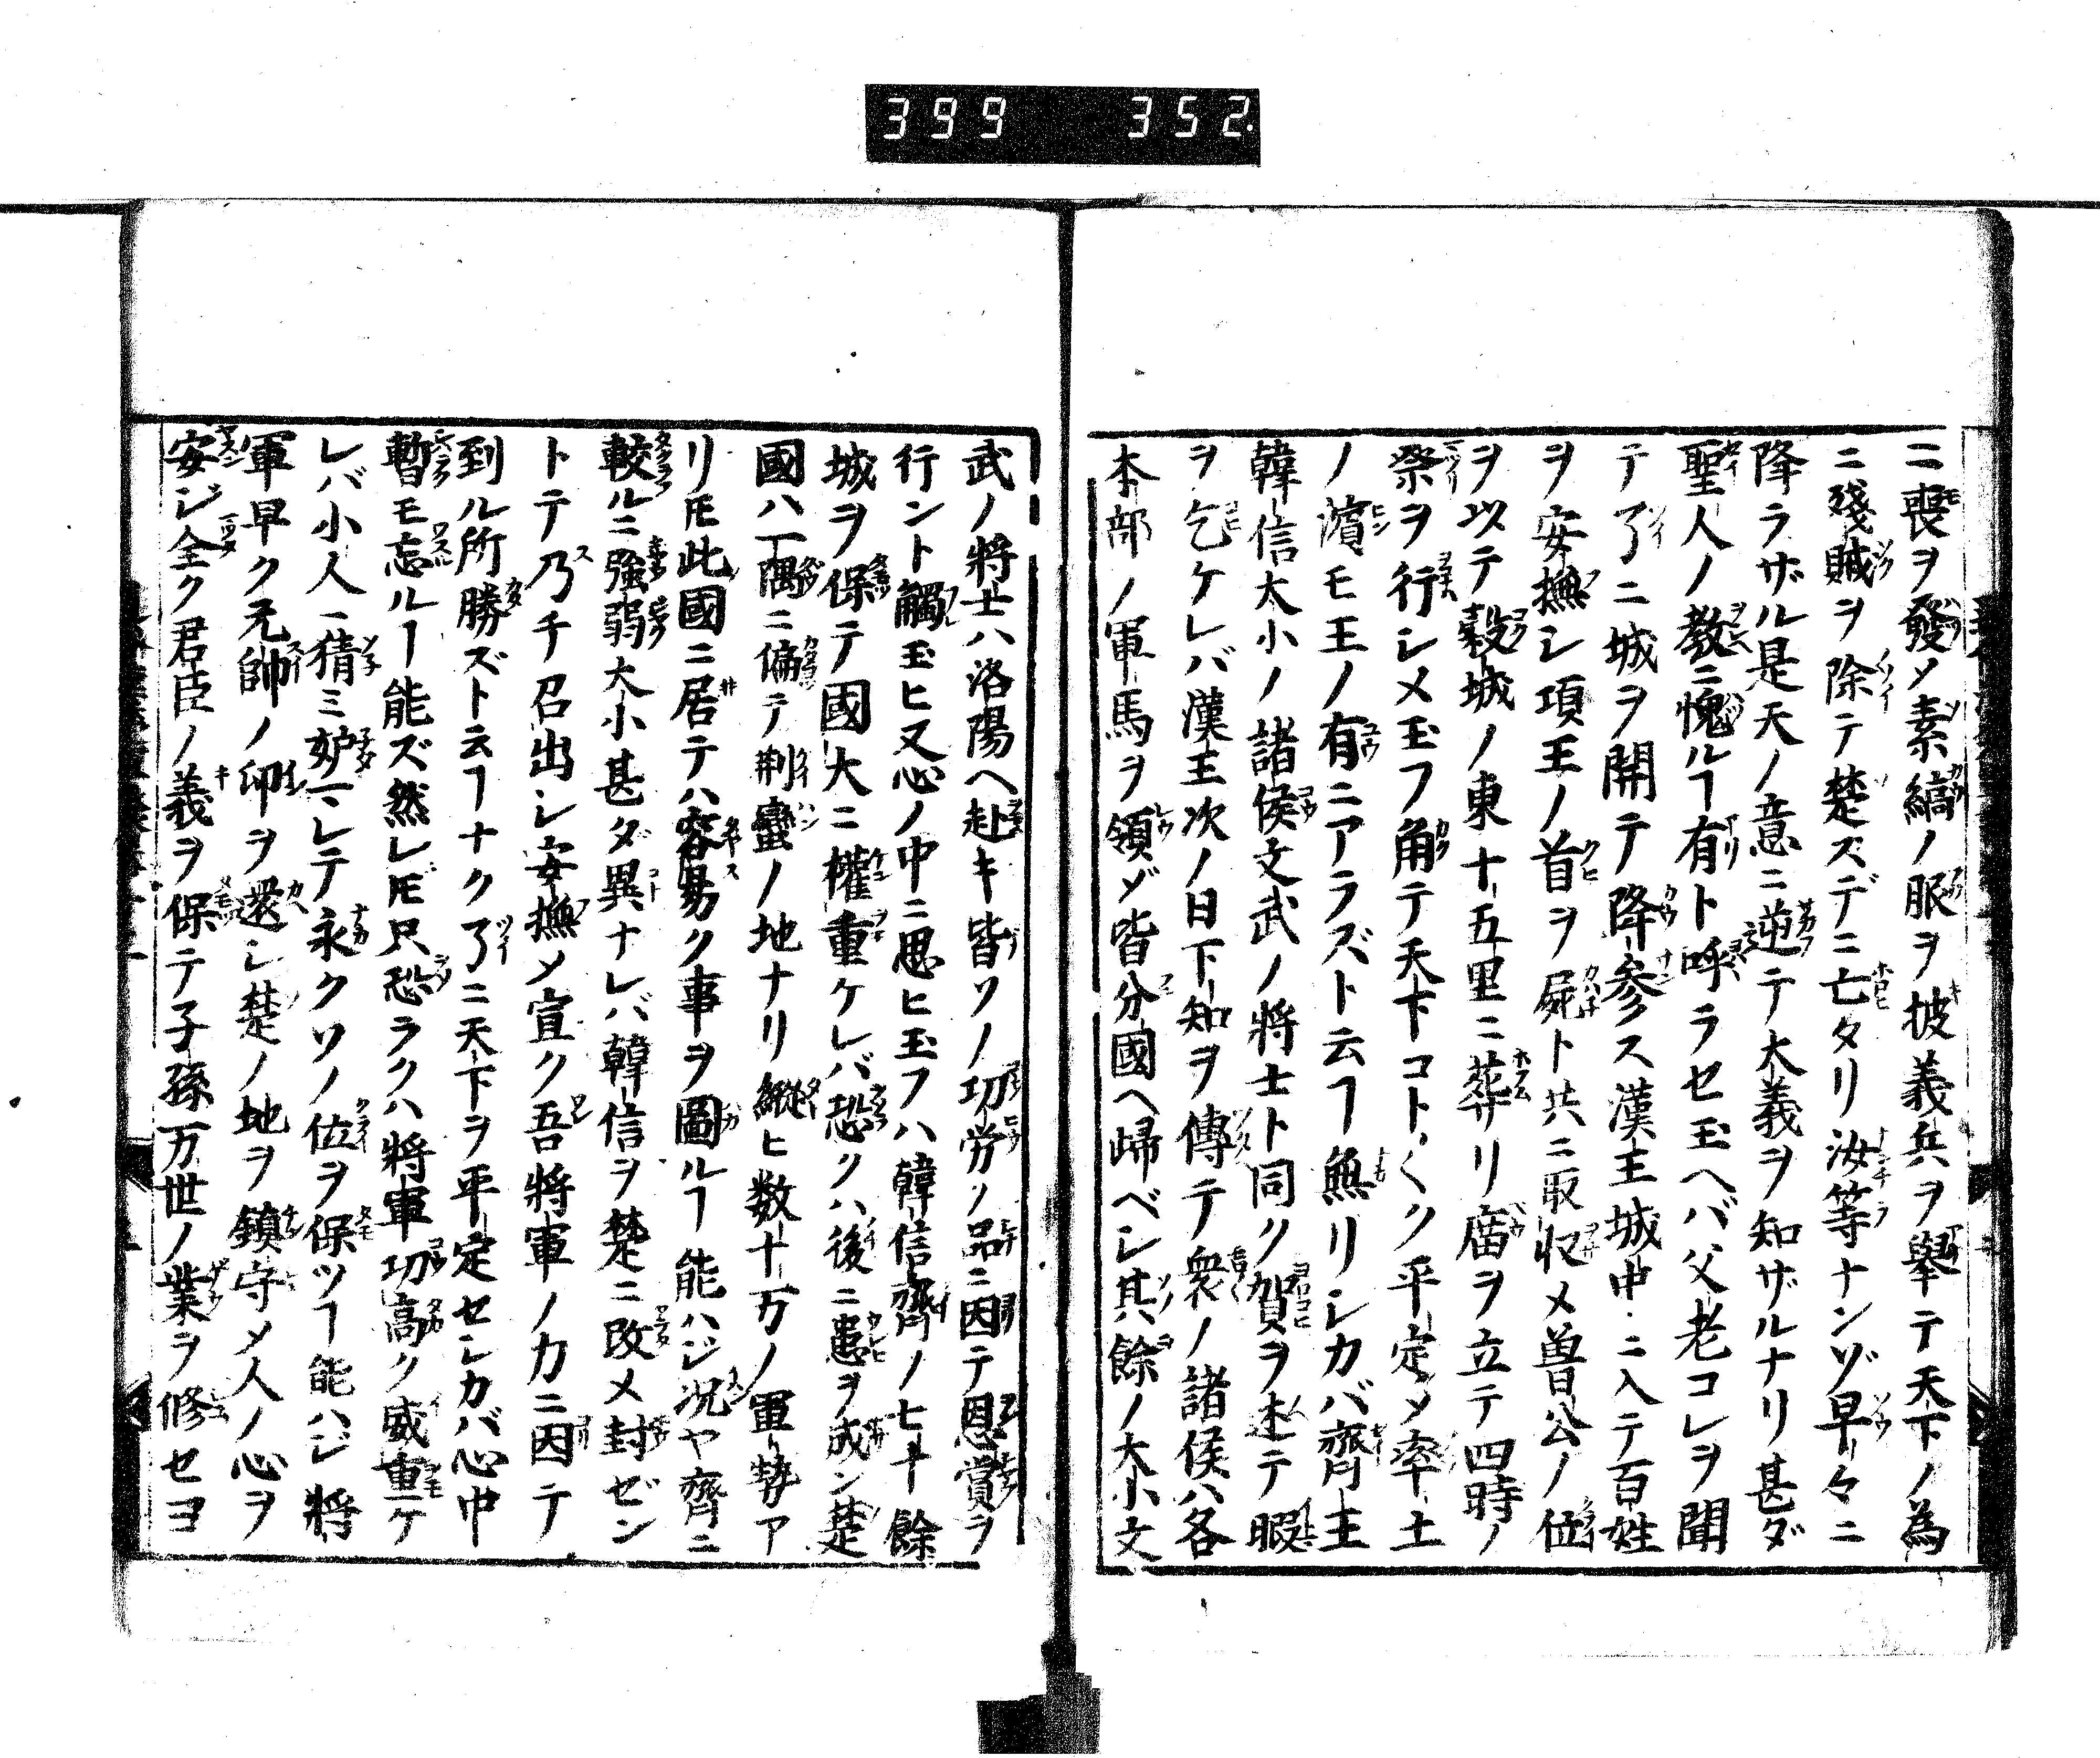 399 352.
ニ喪ヲ發メ素縞ノ服ヲ披義兵ヲ擧テ天下ノ為
ニ殘賊ヲ除テ楚スデニ亡タリ汝等ナンゾ早々ニ
降ラザル是天ノ意ニ逆テ大義ヲ知ザルナリ甚ダ
聖人ノ教ニ愧ルヿ有ト呼ラセ玉ヘバ父老コレヲ聞
テ了ニ城ヲ開テ降参ス漢王城中ニ入テ百姓
ヲ安撫シ項王ノ首ヲ屍ト共ニ取収メ魯公ノ位
ヲ以テ穀城ノ東十五里ニ葬リ庿ヲ立テ四時ノ
祭ヲ行シメ玉フ角テ天下コト〱ク平定メ率土
ノ濱モ王ノ有ニアラズト云ヿ無リシカバ齊王
韓信大小ノ諸侯文武ノ将士ト同ク賀ヲ述テ暇
ヲ乞ケレバ漢王次ノ日下知ヲ傳テ衆ノ諸侯ハ各
本部ノ軍馬ヲ領ゾ皆分國ヘ歸ベシ其餘ノ大小文
武ノ將士ハ洛陽ヘ赴キ皆ソノ功労ノ品ニ因テ恩賞ヲ
行ント觸玉ヒ又心ノ中ニ思ヒ玉フハ韓信齊ノ七十餘
城ヲ保テ國大ニ權重ケレバ恐クハ後ニ患ヲ成ン楚
國ハ一隅ニ偏テ荆蠻ノ地ナリ縱ヒ数十万ノ軍勢ア
リ𪜈此國ニ居テハ容易ク事ヲ圖ルヿ能ハジ况ヤ齊ニ
較ルニ強弱大小甚ダ異ナレバ韓信ヲ楚ニ改メ封ゼン
トテ乃チ召出シ安撫メ宣ク吾將軍ノ力ニ因テ
到ル所勝ズト云ヿナク了ニ天下ヲ平定セシカバ心中
暫モ忘ルヿ能ズ然レ𪜈只恐ラクハ將軍功高ク威重ケ
レバ小人ニ猜ミ妒マレテ永クソノ位ヲ保ツヿ能ハジ將
軍早ク元帥ノ印ヲ還シ楚ノ地ヲ鎮守メ人ノ心ヲ
安ジ全ク君臣ノ義ヲ保テ子孫万世ノ業ヲ修セヨ